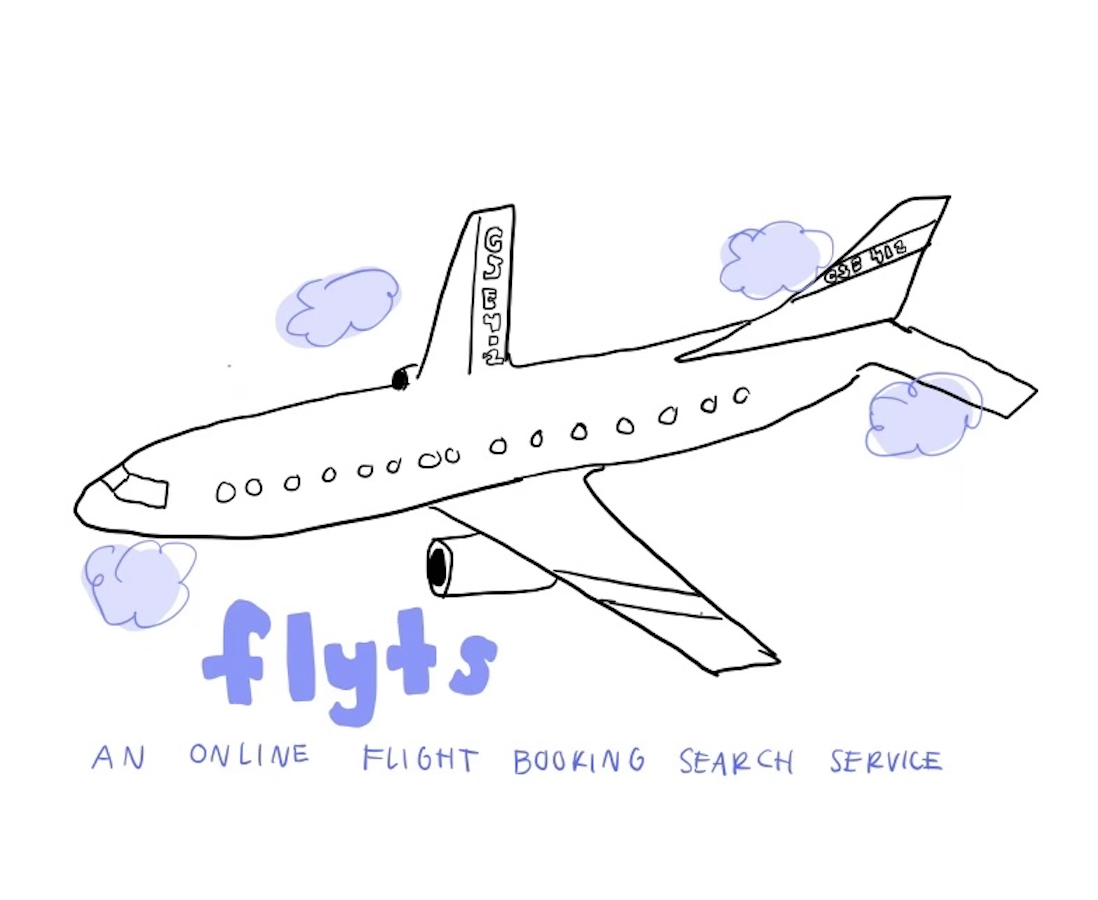 CSE 412
CSE 412
flyts
AN ONLINE FLIGHT BOOKING SEARCH SERVICE